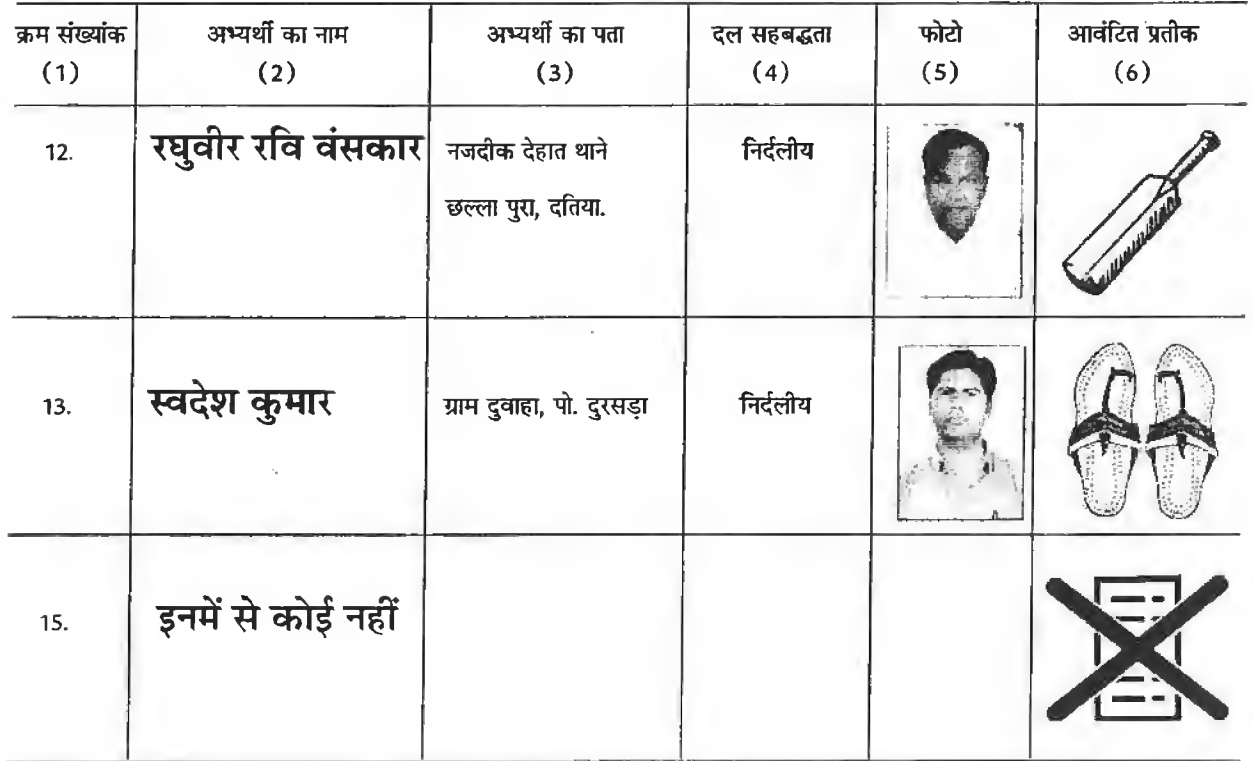 क्रम संख्यांक अभ्यर्थी का नाम अभ्यर्थी का पता दल सहबद्धता फोटो आवंटित प्रतीक
(1) (2) (3) (4) (5) (6)
12. रघुवीर रवि वंसकार नजदीक देहात थाने निर्दलीय
छल्ला पुरा, दतिया.
13. स्वदेश कुमार ग्राम दुवाहा, पो. दुरसड़ा निर्दलीय
15. इनमें से कोई नहीं